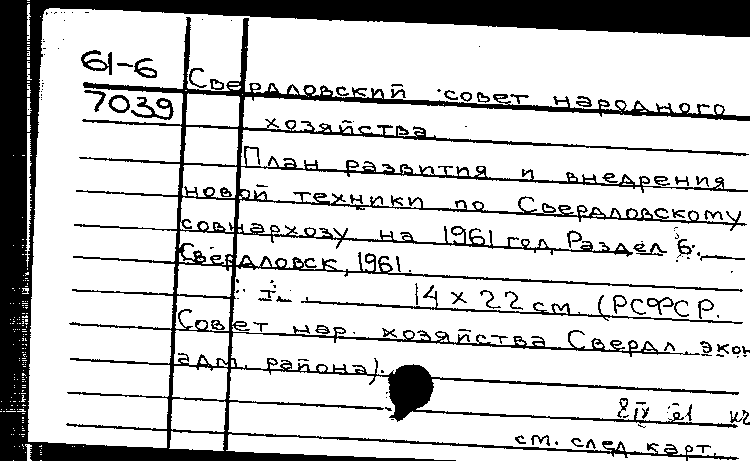 61-6
7039
Свердловский совет народного
хозяйства.
План развития и внедрения
новой техники по Свердловскому
совнархозу на 1961 год. Раздел 6.
Свердловск, 1961.
14 x 22 см. (РСФСР.
Совет нар. хозяйства Свердл. экон
адм. района).
8 IV 61
см. след. карт.